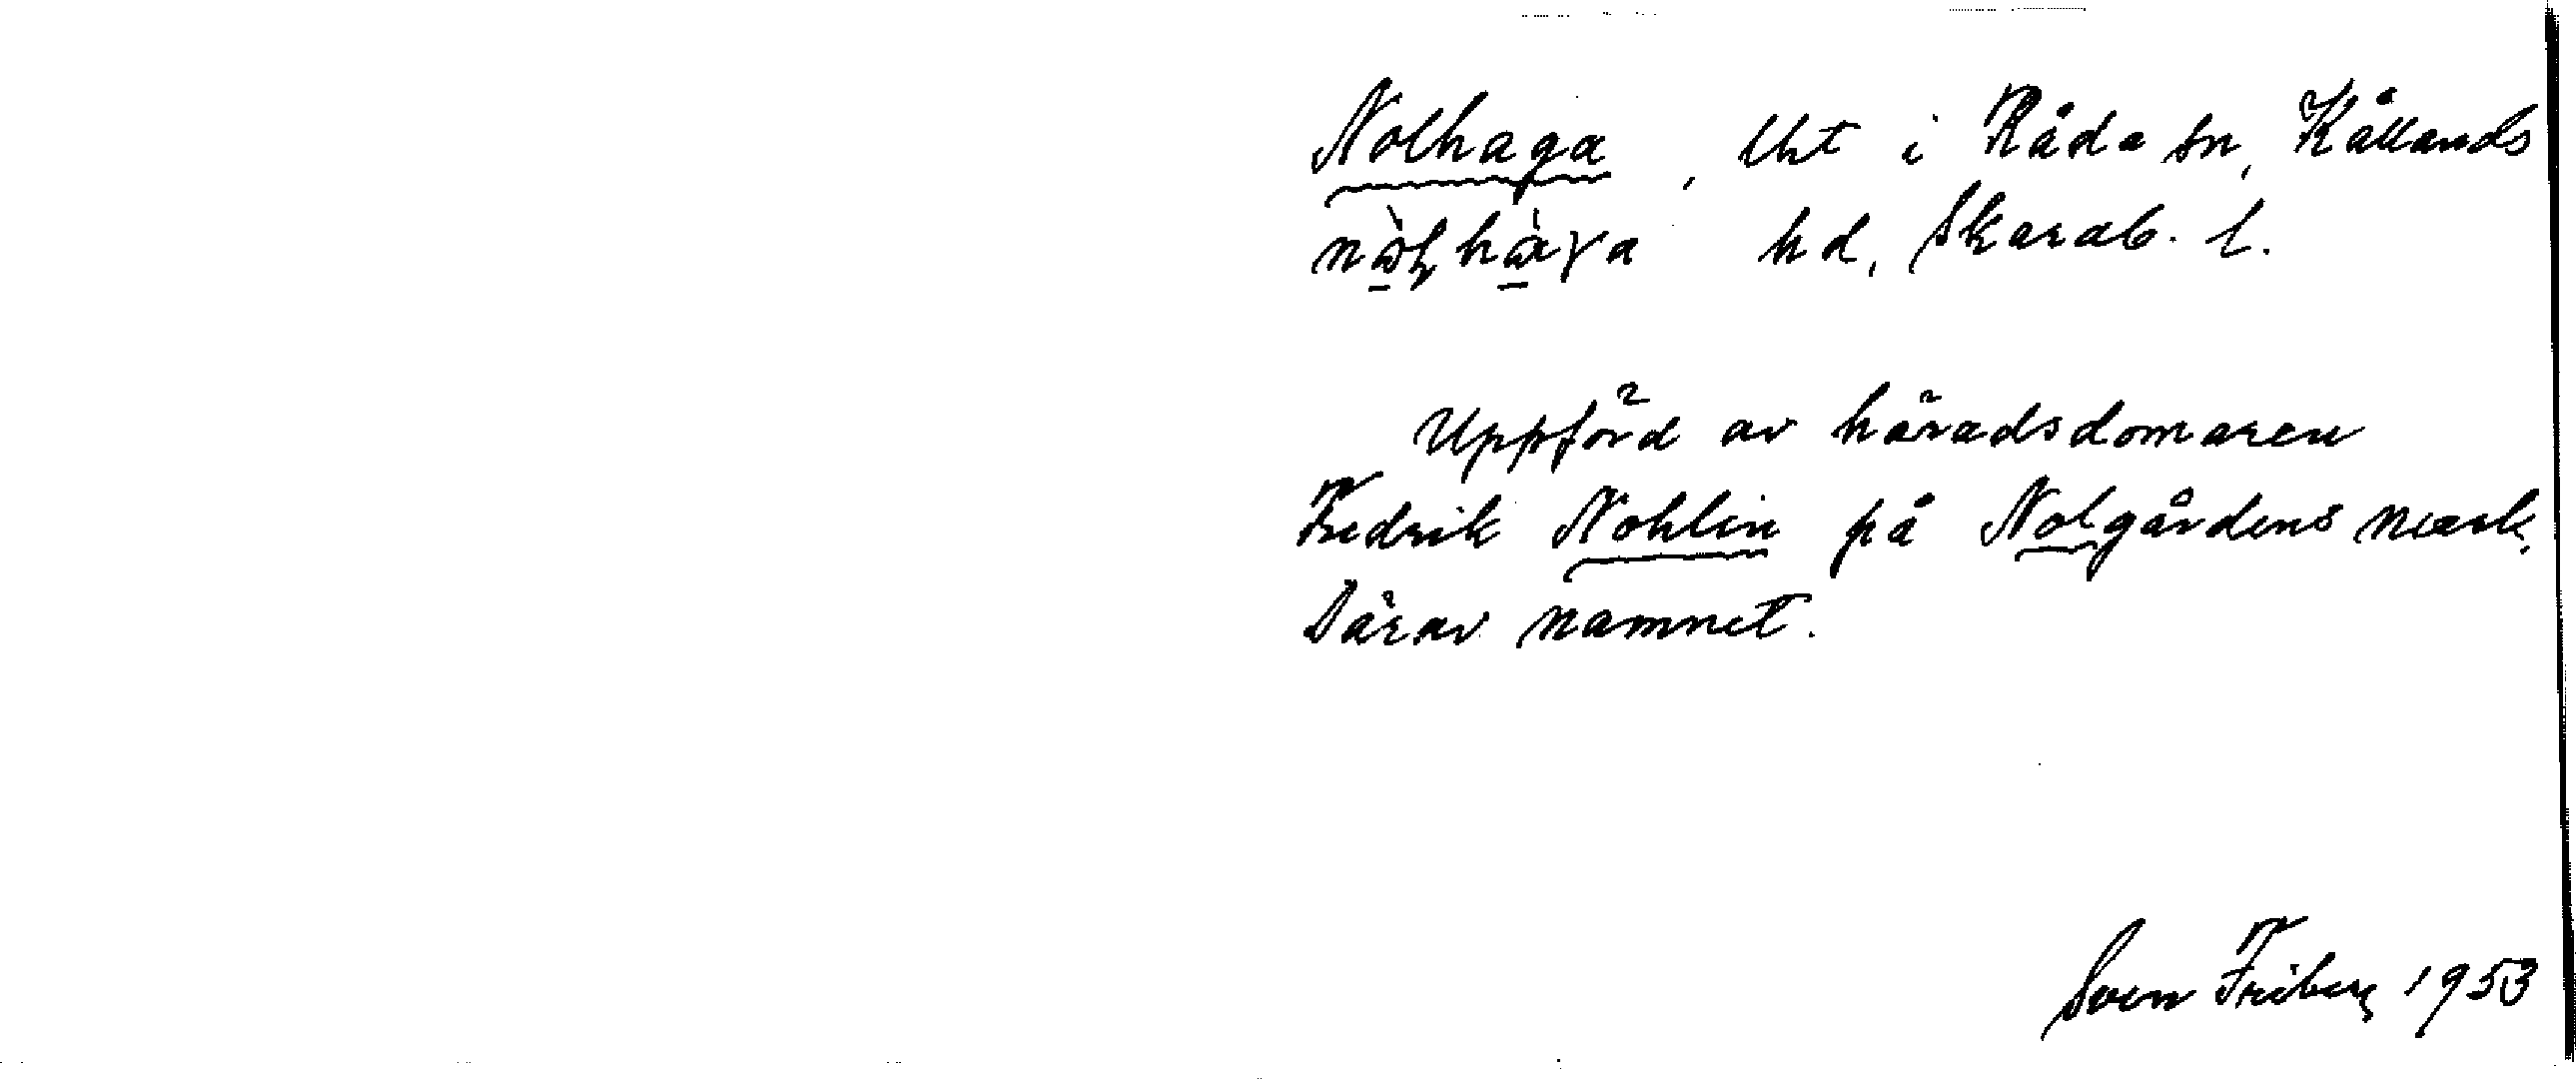 Nolhaga, lht i Råda sn, Kållands
hd, Skarab. l.
Uppförd av häradsdomaren
Fredrik Nohlin på Nolgårdens mark.
Därav namnet.
Sven Friberg 1953